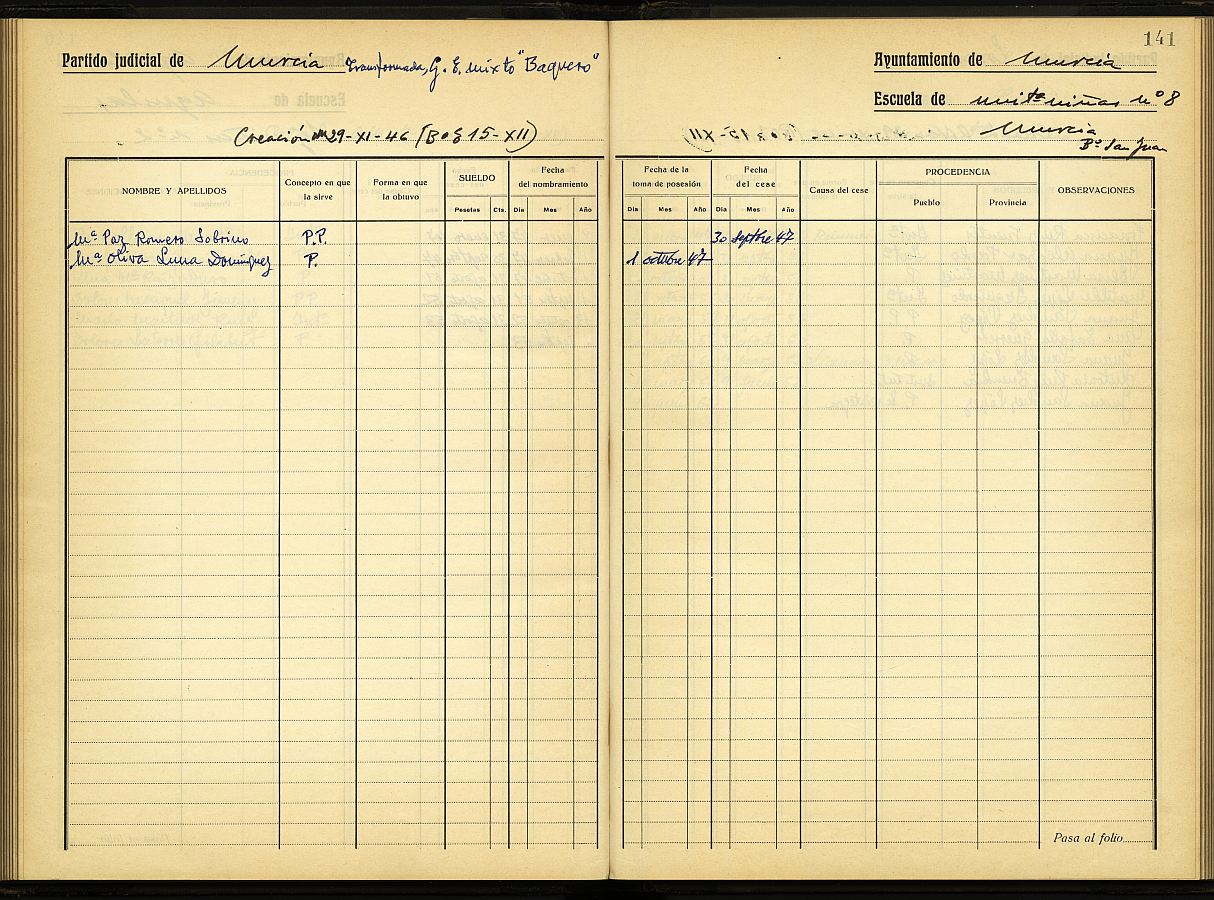 141
Partido judicial de Murcia Transformada, G. E. mixto "Baquero"
Ayuntamiento de Murcia
Escuela de unitª niñas nº 8
Creación 29-XI-46 (BOE 15-XII)
Murcia
Bº San Juan
NOMBRE Y APELLIDOS
Concepto en que la sirve
Forma en que la obtuvo
SUELDO
Pesetas Cts.
Fecha del nombramiento
Dia Mes Año
Fecha de la toma de posesión
Dia Mes Año
Fecha del cese
Dia Mes Año
Causa del cese
PROCEDENCIA
Pueblo Provincia
OBSERVACIONES
Mª Paz Romero Sobrino P.P. 30 Septbre 47
Mª Oliva Luna Domínguez P. 1 octubre 47
Pasa al folio